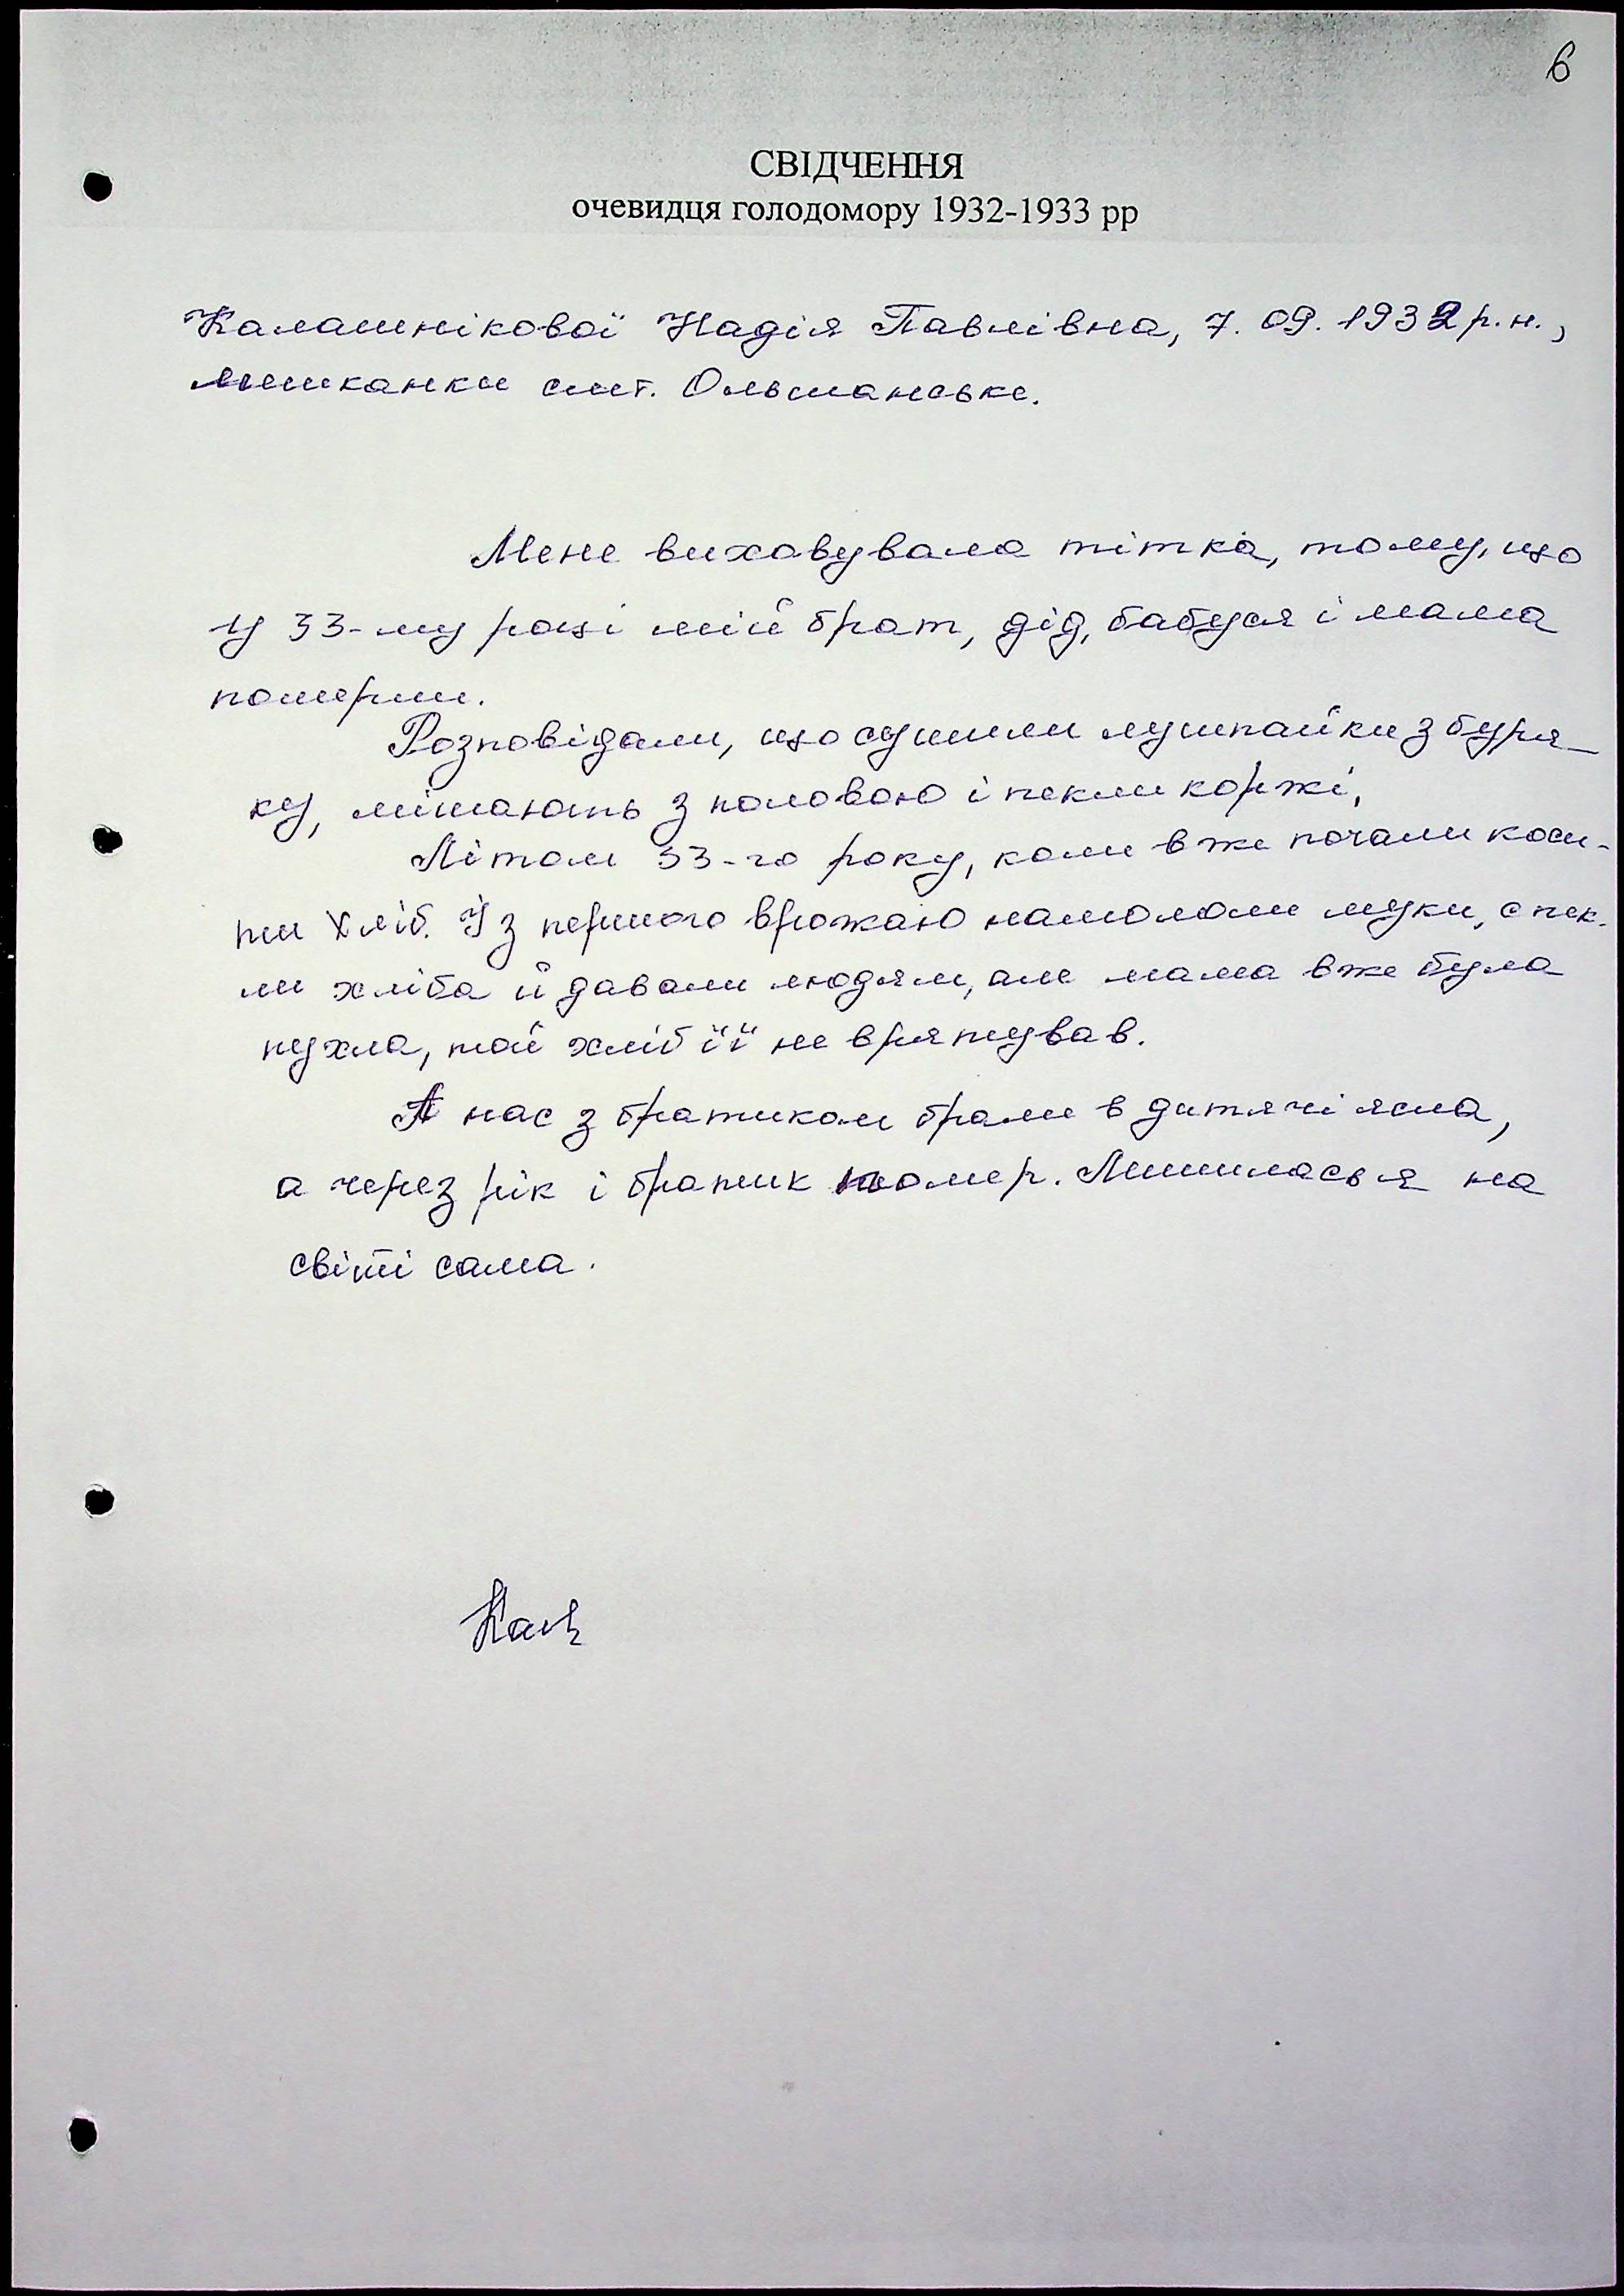 6
СВІДЧЕННЯ
очевидця голодомору 1932-1933 рр
Калашнікової Надія Павлівна, 7. 09. 1932 р. н.,
мешканки смт. Ольшанське.
Мене виховувала тітка, тому, що
у 33-му році мій брат, дід, бабуся і мама
померли.
Розповідали, що сушили лушпайки з буря-
ку, мішають з половою і пекли коржі,
Літом 33-го року, коли вже почали коси-
ти хліб. Із першого врожаю намололи муки, спек-
ли хліба й давали людям, але мама вже була
пухла, той хліб її не врятував.
А нас з братиком брали в дитячі ясла,
а через рік і братик помер. Лишилась я на
світі сама.